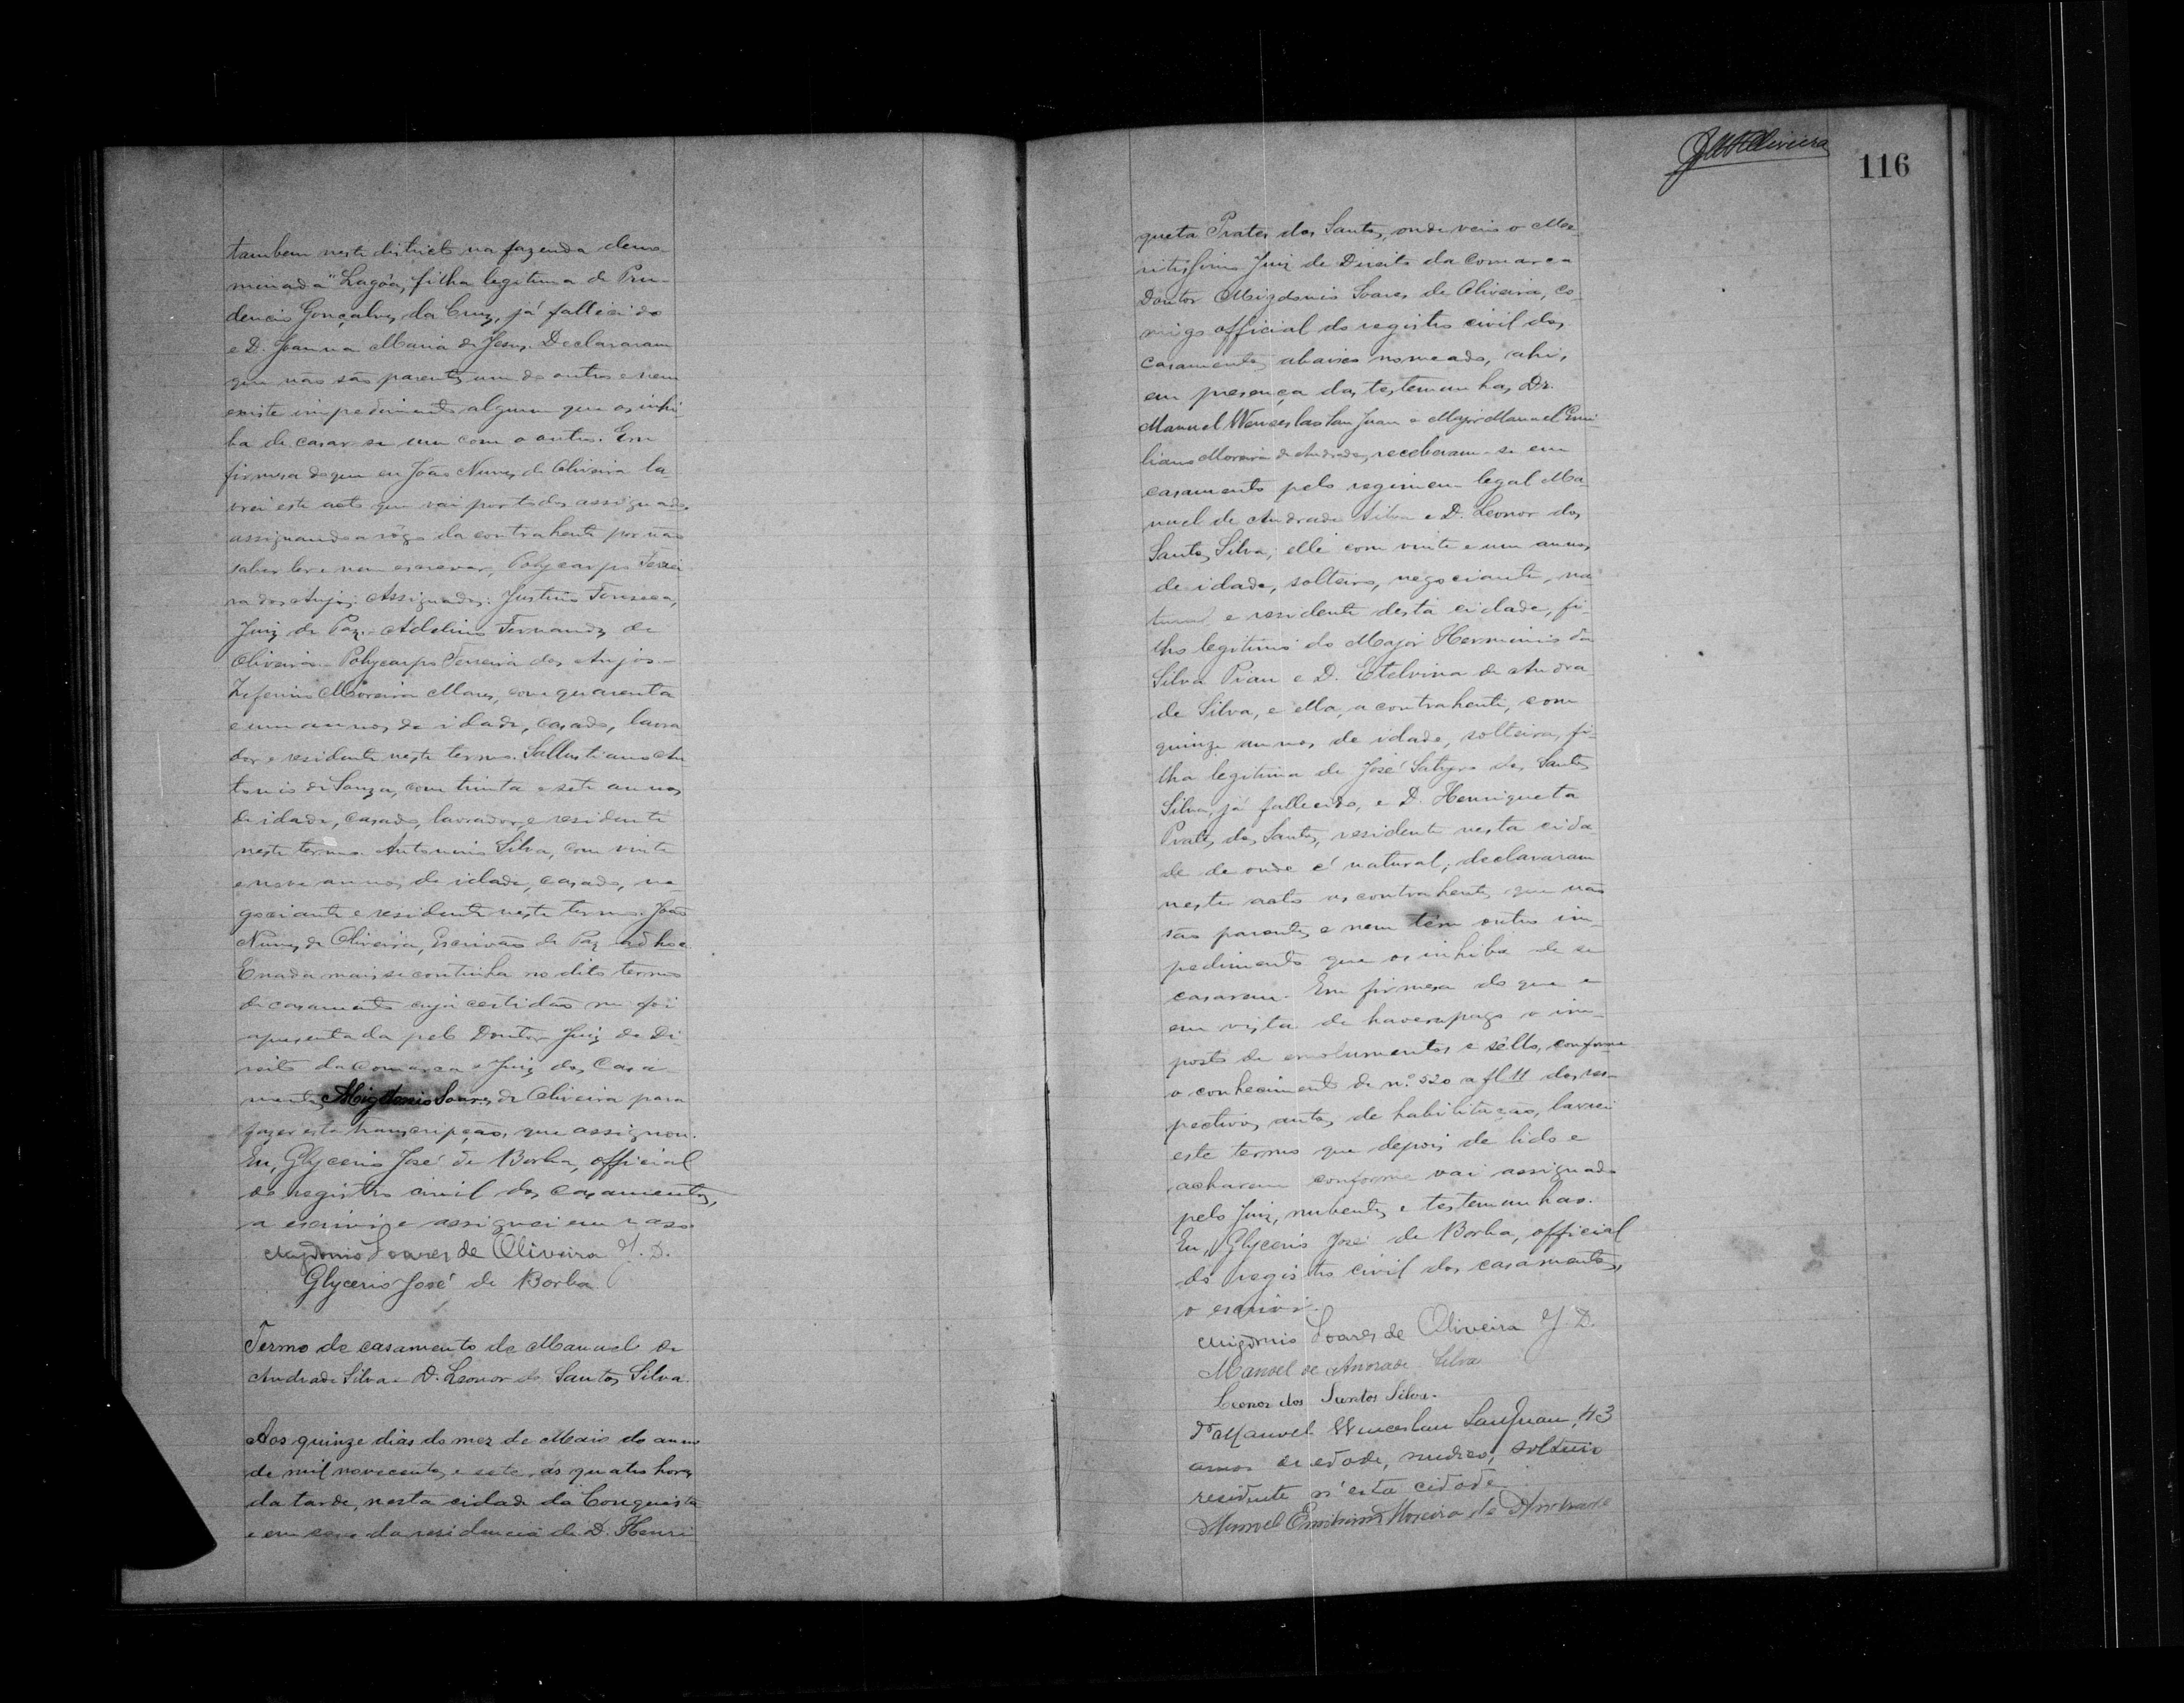 tambem neste districto na fazenda deno-
minada "Lagôa, filha legitima de Pru-
dencio Gonçalves da Cruz, já fallecido
e D. Joanna Maria de Jesus. Declararam
que não são parentes um do outro e nem
existe impedimento algum que os inhi-
ba de casar-se um com o outro. Em
firmesa do que eu João Nunes de Oliveira la-
vrei este acto que vai por todos assignado,
assignando a rôgo da contrahente por não
saber ler e nem escrever, Polycarpo Ferrei
ra dos Anjos. Assignados: Justino Fonseca,
Juiz de Paz. Adelino Fernandes de
Oliveira - Polycarpo Ferreira dos Anjos -
Zeferino Moreira Mares, com quarenta
e um annos de idade, casado, lavra
dor e residente neste termo. Sallustiano An
tonio de Souza, com trinta e sete annos
de idade, casado, lavrador e residente
neste termo. Antonio Silva, com vinte
e nove annos de idade, casado, ne-
gociante e residente neste termo. João
Nunes de Oliveira, Escrivão de Paz ad hoc
E nada mais se continha no dito termo
de casamento cuja certidão me foi
apresentada pelo Doutor Juiz de Di-
reito da comarca e Juiz dos Casa-
mentos Migdonio Soares de Oliveira para
fazer esta transcripção, que assignou.
Eu, Glycerio José de Borba, official
do registro civil dos casamentos,
a escrivi e assignei em raso
Migdonio Soares de Oliveira J. D.
Glycerio José de Borba
Termo de casamento de Manuel de
Andrade Silva e D. Leonor dos Santos Silva.
Aos quinze dias do mez de Maio do anno
de mil novecentos e sete, ás quatro horas
da tarde, nesta cidade da Conquista
e em casa da residencia de D. Henri-
116
queta Prates dos Santos, onde veio o Me-
ritissimo Juiz de Direito da comarca
Doutor Migdonio Soares de Oliveira, co-
migo official do registro civil dos
casamentos abaixo nomeado, ahi,
em presença das testemunhas, Dr.
Manuel Wenceslao San Juan e Major Manuel Emi
liano Moreira de Andrade, receberam-se em
casamento pelo regimen legal Ma-
nuel de Andrade Silva e D. Leonor dos
Santos Silva; elle com vinte e um annos
de idade, solteiro, negociante, na
tural e residente desta cidade, fi-
lho legitimo do Major Herminio da
Silva Pian e D. Etelvina de Andra-
de Silva, e ella, a contrahente, com
quinze annos de idade, solteira, fi-
lha legitima de José Satyro dos Santos
Silva, já fallecido, e D. Henriqueta
Prates dos Santos, residente nesta cida
de de onde é natural; declararam
neste acto os contrahentes que não
são parentes e nem têm outro im-
pedimento que os inhiba de se
casarem. Em firmesa do que e
em vista de haverem pago o im-
posto de emolumentos e sêllo, conforme
o conhecimento de nº 520 a fl 11 dos res-
pectivos autos de habilitação, lavrei
este termo que depois de lido e
acharem conforme vai assignado
pelo Juiz, nubentes e testemunhas.
Eu, Glycerio José de Borba, official
do registro civil dos casamentos,
o escrivi.
Migdonio Soares de Oliveira J. D.
Manoel de Andrade Silva
Leonor dos Santos Silva.
Dr Manuel Wenceslau SanJuan, 43
annos de edade, medico, solteiro
residente n'esta cidade
Manuel Emiliano Moreira de Andrade